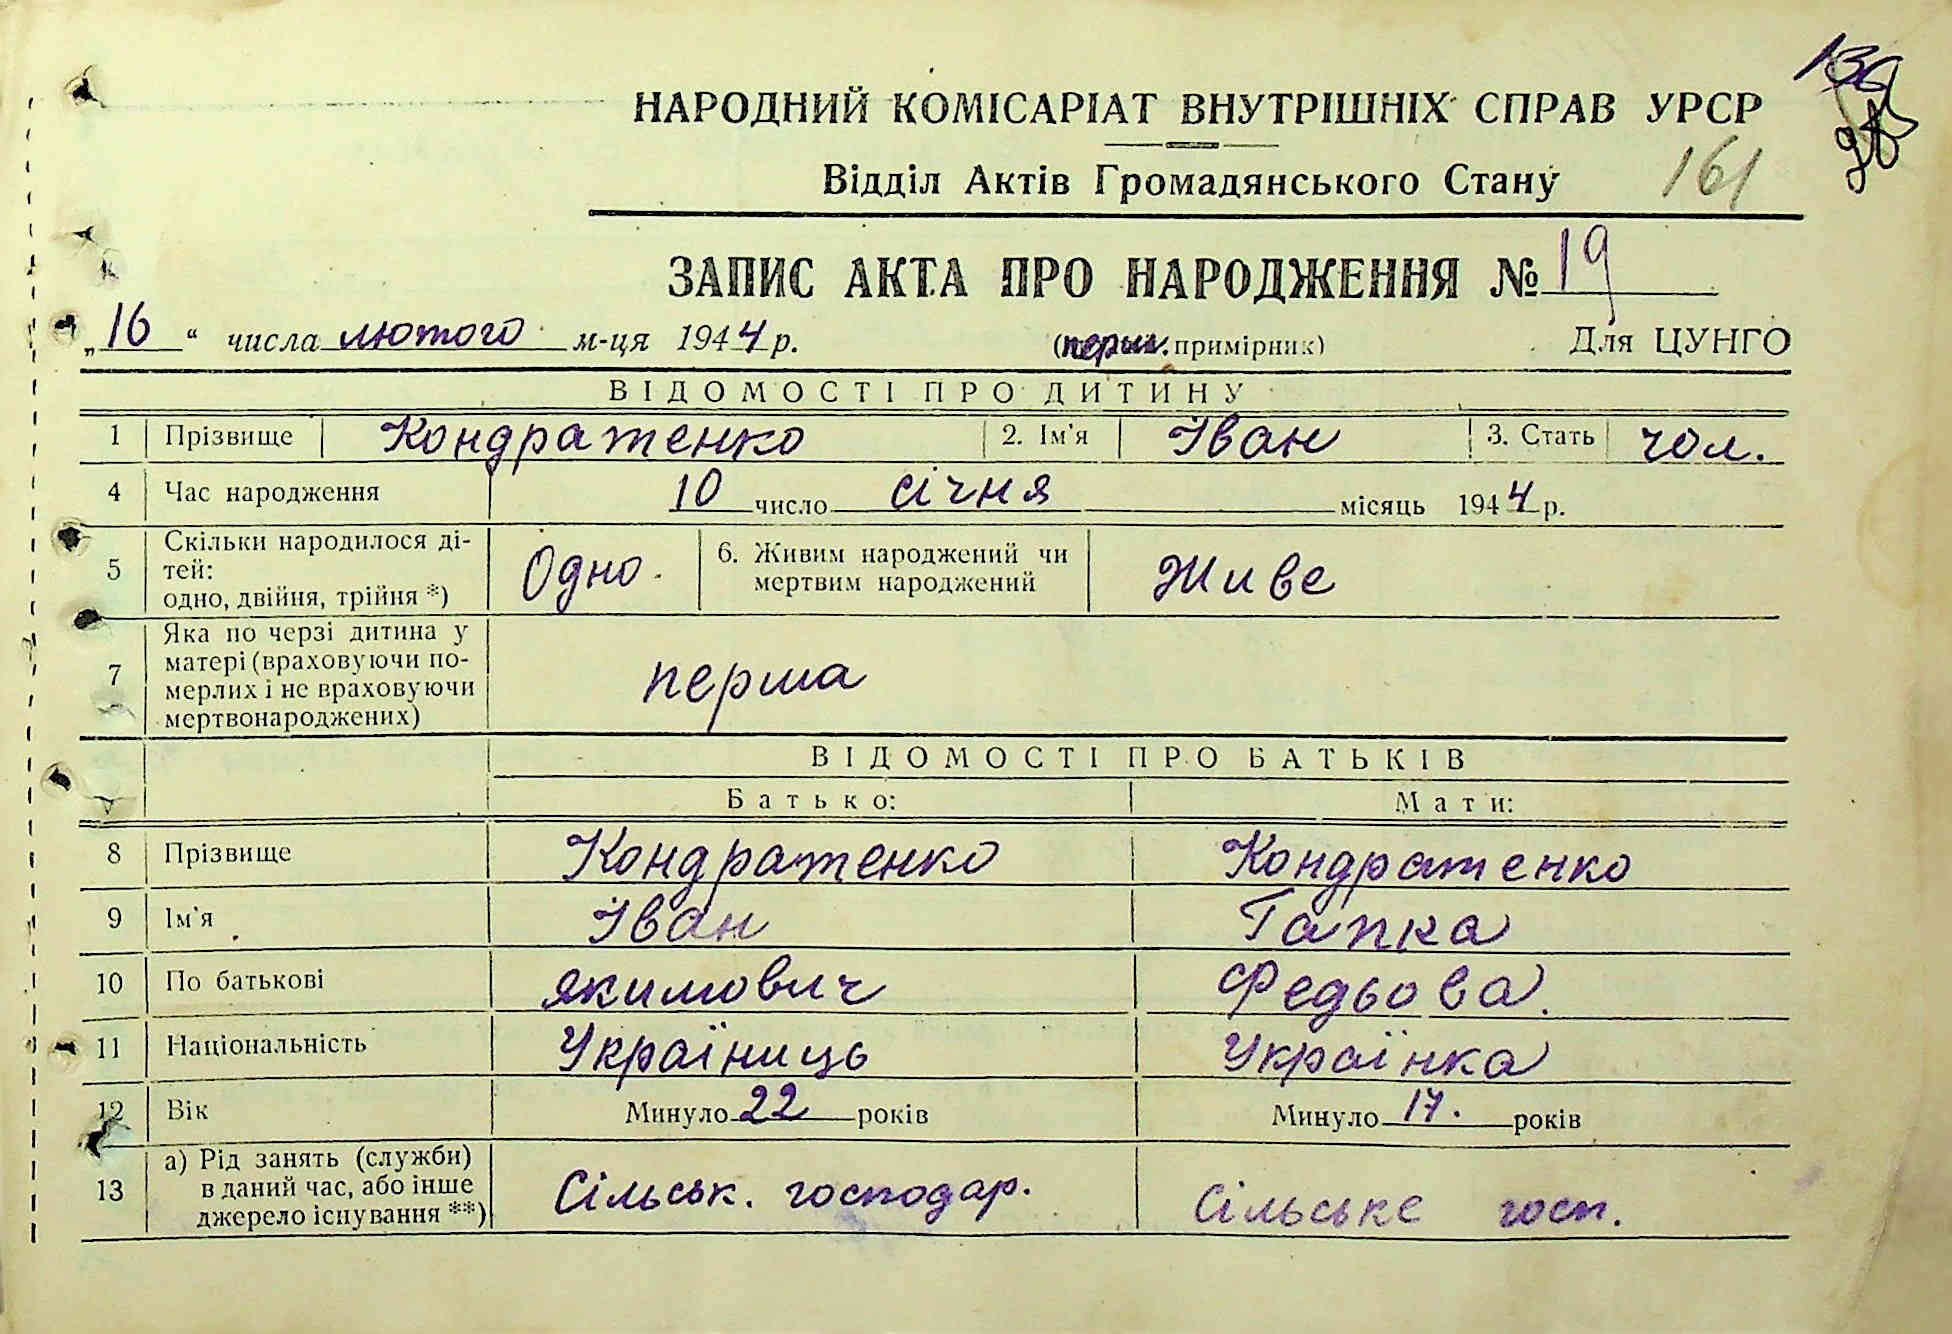 НАРОДНИЙ КОМІСАРІАТ ВНУТРІШНІХ СПРАВ УРСР
Відділ Актів Громадянського Стану 161
ЗАПИС АКТА ПРО НАРОДЖЕННЯ № 19
„16“ числа лютого м-ця 1944 р. (перш. примірник) Для ЦУНГО
ВІДОМОСТІ ПРО ДИТИНУ
1 Прізвище Кондратенко 2. Ім'я Іван 3. Стать чол.
4 Час народження 10 число січня місяць 1944 р.
5 Скільки народилося ді-
тей:
одно, двійня, трійня *) Одно. 6. Живим народжений чи
мертвим народжений Живе
7 Яка по черзі дитина у
матері (враховуючи по-
мерлих і не враховуючи
мертвонароджених) перша
ВІДОМОСТІ ПРО БАТЬКІВ
Батько: Мати:
8 Прізвище Кондратенко Кондратенко
9 Ім'я Іван Гапка
10 По батькові якимович Федьова.
11 Національність Україниць Українка
12 Вік Минуло 22 років Минуло 17. років
13 а) Рід занять (служби)
в даний час, або інше
джерело існування **) Сільськ. господар. Сільське госп.